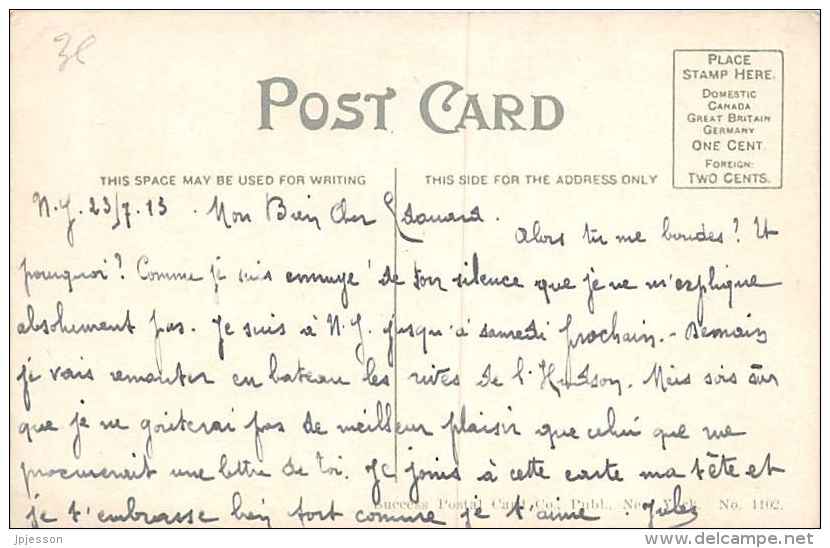 3€
PLACE
STAMP HERE.
DOMESTIC
CANADA
GREAT BRITAIN
GERMANY
ONE CENT.
FOREIGN:
TWO CENTS.
POST CARD
THIS SPACE MAY BE USED FOR WRITING
THIS SIDE FOR THE ADDRESS ONLY
N.Y. 23/7.13. Mon Bien Cher Edouard.
Alors tu me boudes? Et
pourquoi? Comme je suis ennuyé de ton silence que je ne m'explique
absolument pas. Je suis à N.Y. jusqu'à samedi prochain. - Demain
je vais remonter en bateau les rives de l'Hudson. Mais sois sûr
que je ne goûterai pas de meilleur plaisir que celui que me
procurerait une lettre de toi. Je joins à cette carte ma tête et
je t'embrasse bien fort comme je t'aime. Jules
Success Postal Card Co., Publ., New York. No. 1102.
jpjesson
www.delcampe.net